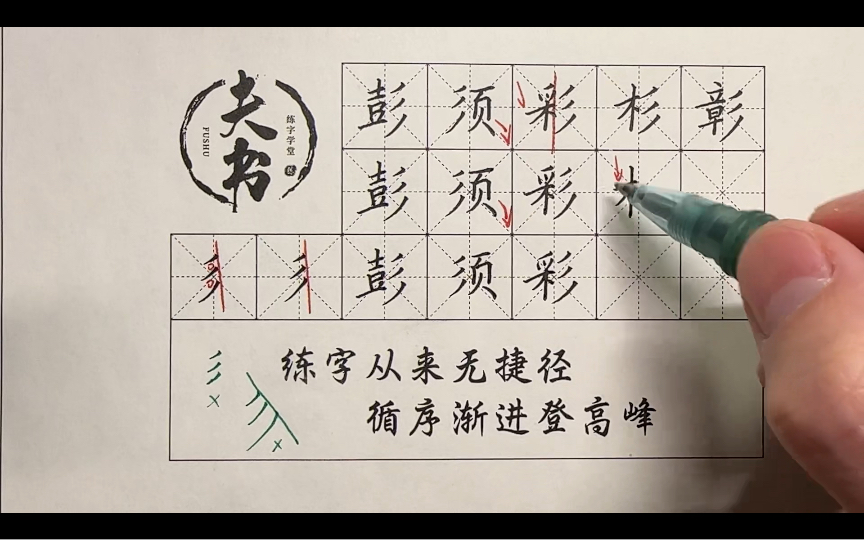 夫书
练字学堂
FUSHU
彭须彩杉彰
彭须彩木
彡彡彭须彩
练字从来无捷径
循序渐进登高峰